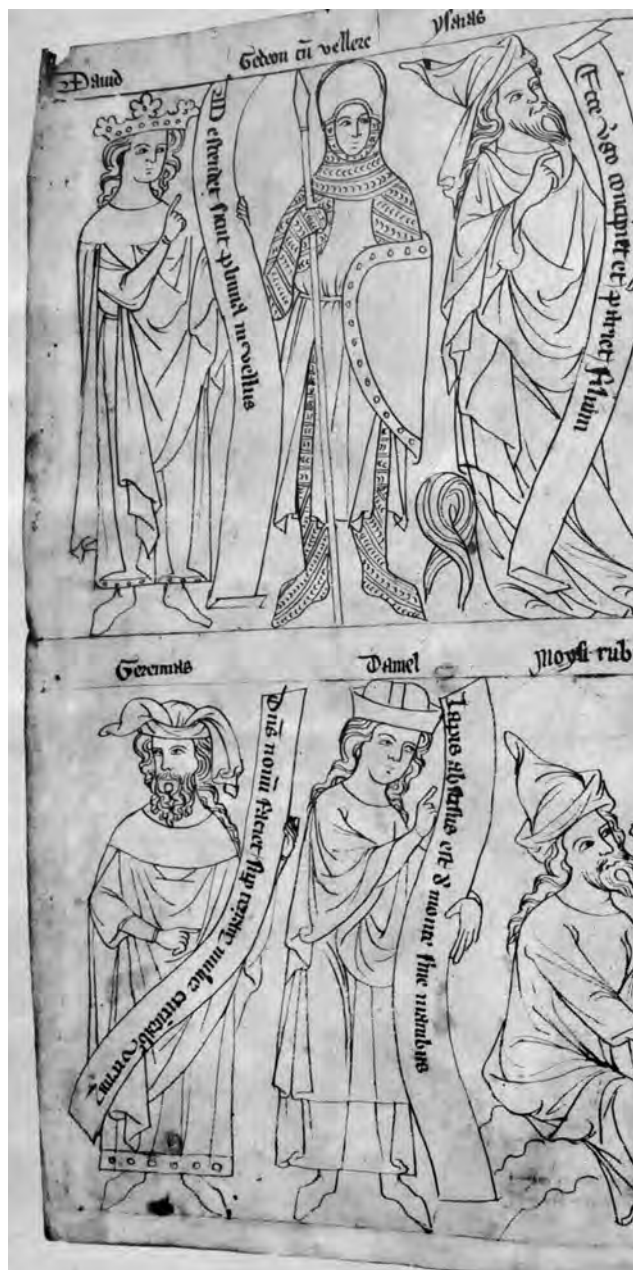 Dauid
Gedeon cū vellere
ysaias
Descendet sicut pluuia in vellus
Ecce v̄go concipiet et pariet filium
Geremias
Daniel
Moysi rub
Dns nouū faciet sup
mulier
Lapis abscisus est d monte sine manibus